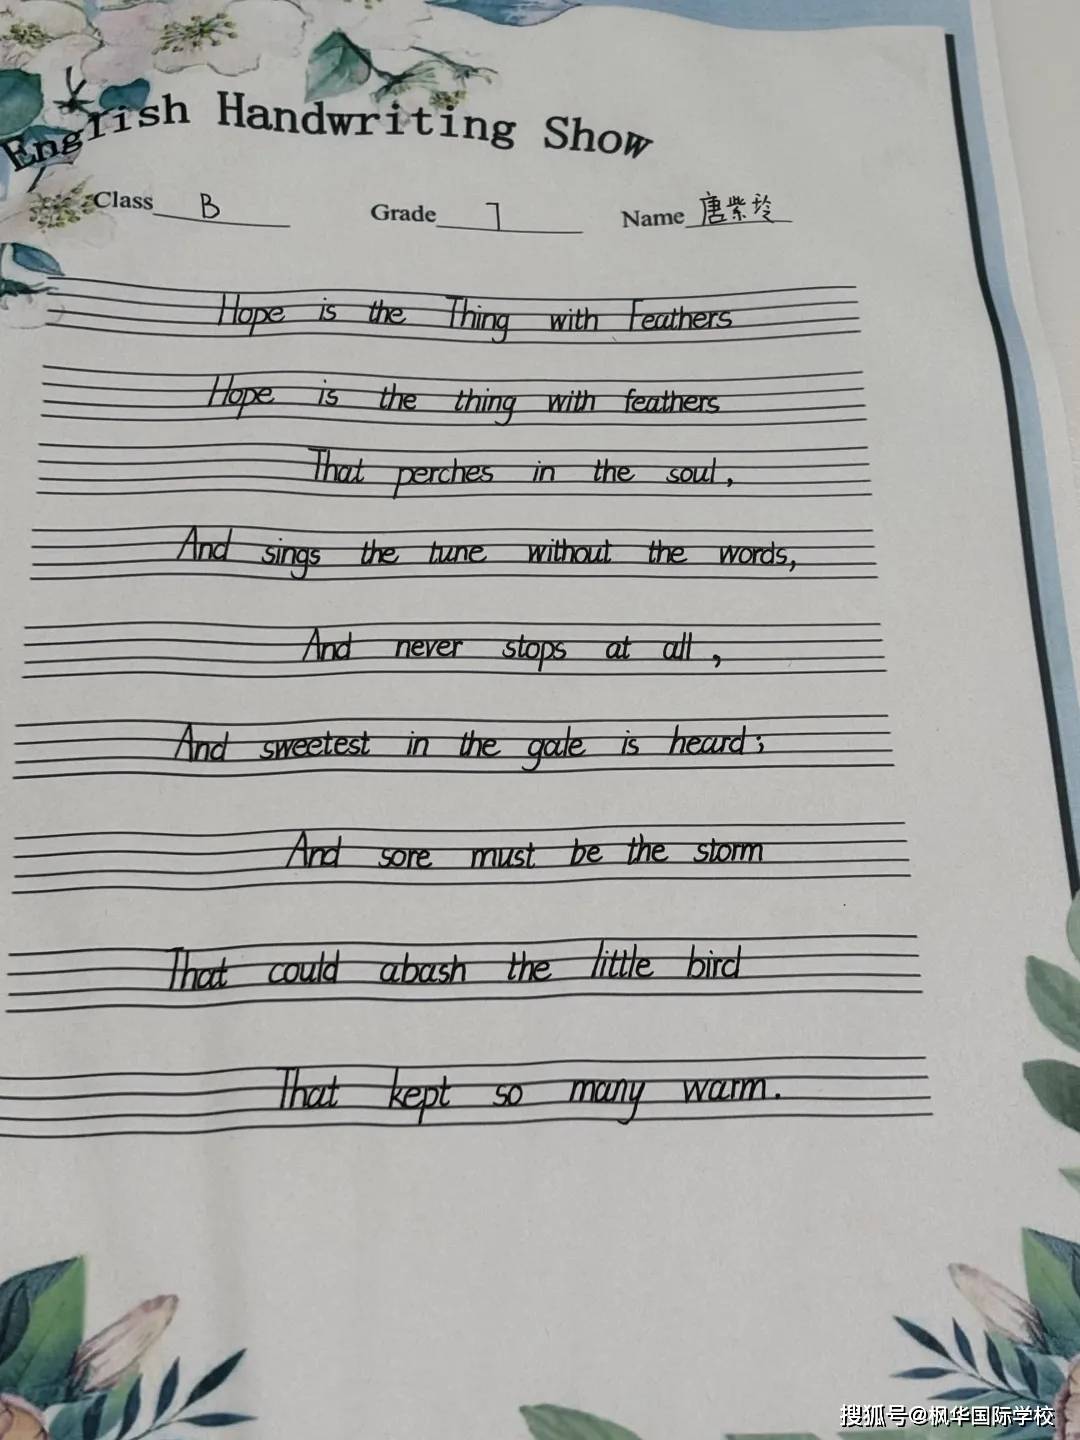 English Handwriting Show
Class B Grade 7 Name 唐紫玲
Hope is the Thing with Feathers
Hope is the thing with feathers
That perches in the soul,
And sings the tune without the words,
And never stops at all,
And sweetest in the gale is heard;
And sore must be the storm
That could abash the little bird
That kept so many warm.
搜狐号@枫华国际学校